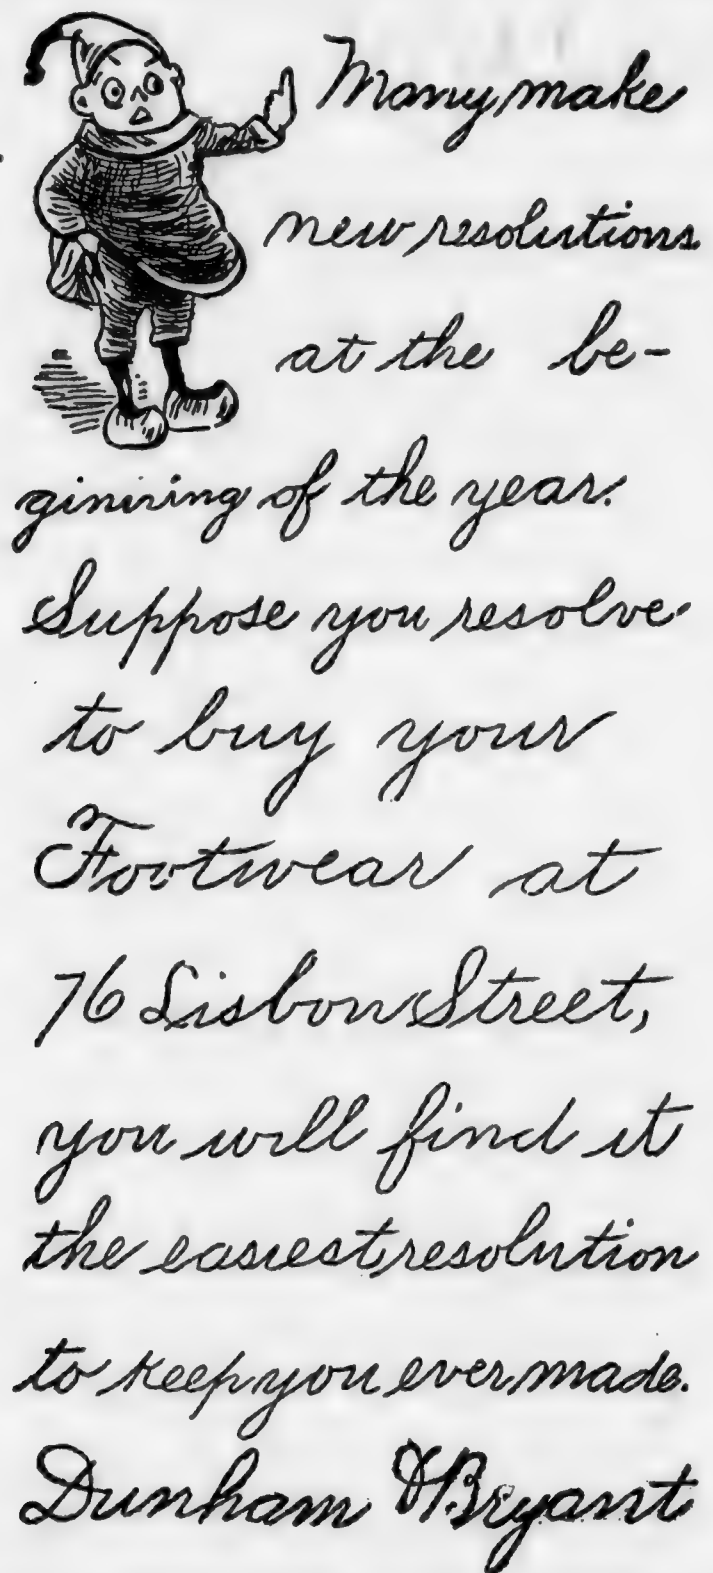 Many make
new resolutions
at the be-
ginning of the year.
Suppose you resolve
to buy your
Footwear at
76 Lisbon Street,
you will find it
the easiest resolution
to keep you ever made.
Dunham & Bryant